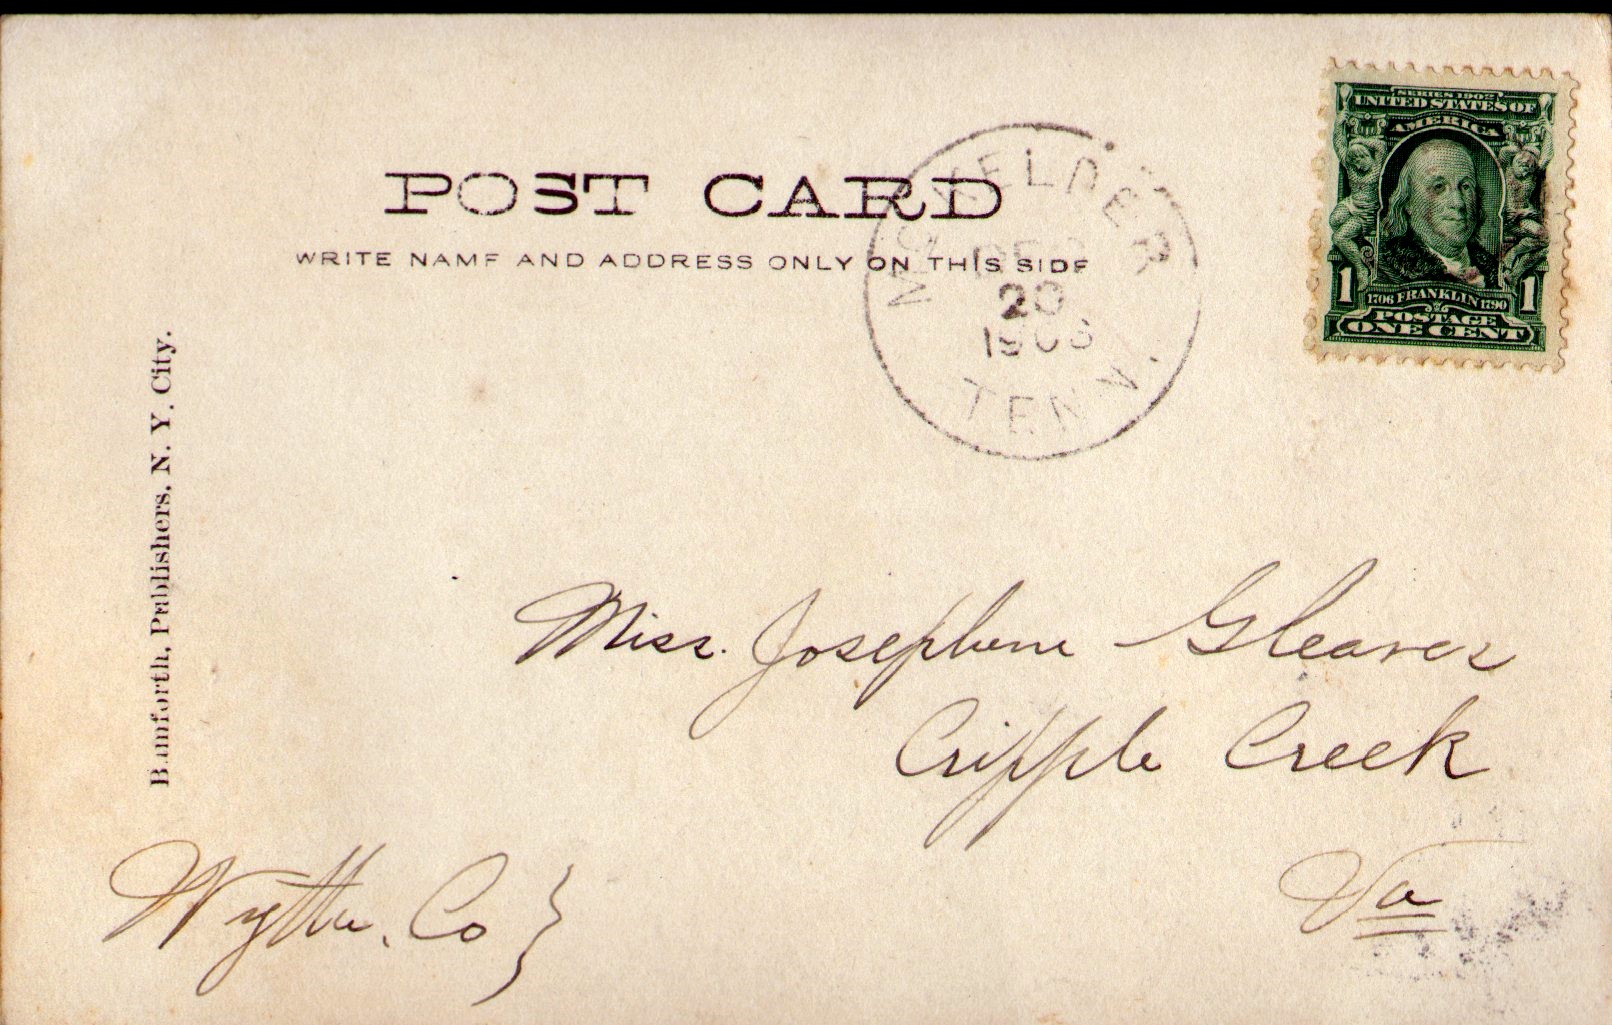 POST CARD
WRITE NAME AND ADDRESS ONLY ON THIS SIDE
SERIES 1902
UNITED STATES OF
AMERICA
1 1
1706 FRANKLIN 1790
POSTAGE
ONE CENT
DEC
20
TENN.
Bamforth, Publishers, N. Y. City.
Miss. Josephine Gleaves
Cripple Creek
Va
Wythe. Co }